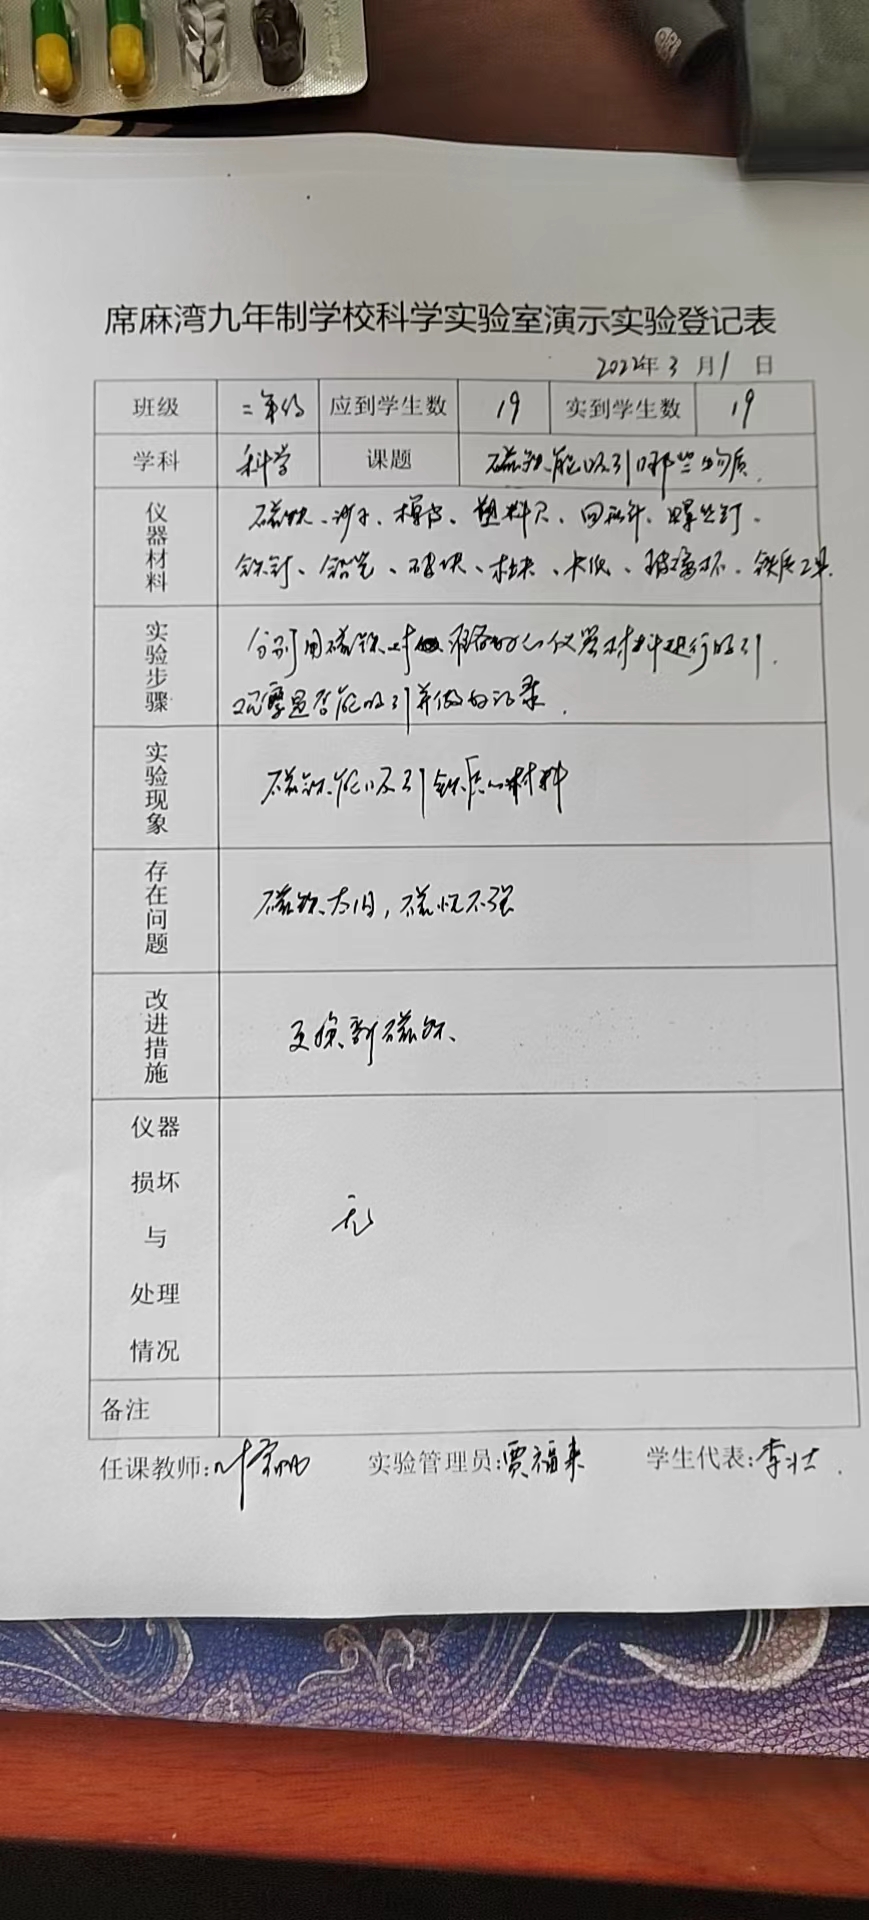 席麻湾九年制学校科学实验室演示实验登记表
2022年3月1日
班级 二年级 应到学生数 19 实到学生数 19
学科 科学 课题 磁铁能吸引哪些物质.
仪器材料 磁铁、沙子、橡皮、塑料尺、回形针、螺丝钉、
铁钉、铅笔、石块、木块、卡纸、玻璃杯、铁质工具.
实验步骤 分别用磁铁对准备好的仪器材料进行吸引.
观察是否能吸引并做好记录.
实验现象 磁铁能吸引铁质的材料
存在问题 磁铁太旧,磁性不强
改进措施 更换新磁铁、
仪器
损坏
与
处理
情况
无
备注
任课教师:叶 实验管理员:贾福来 学生代表:李壮.